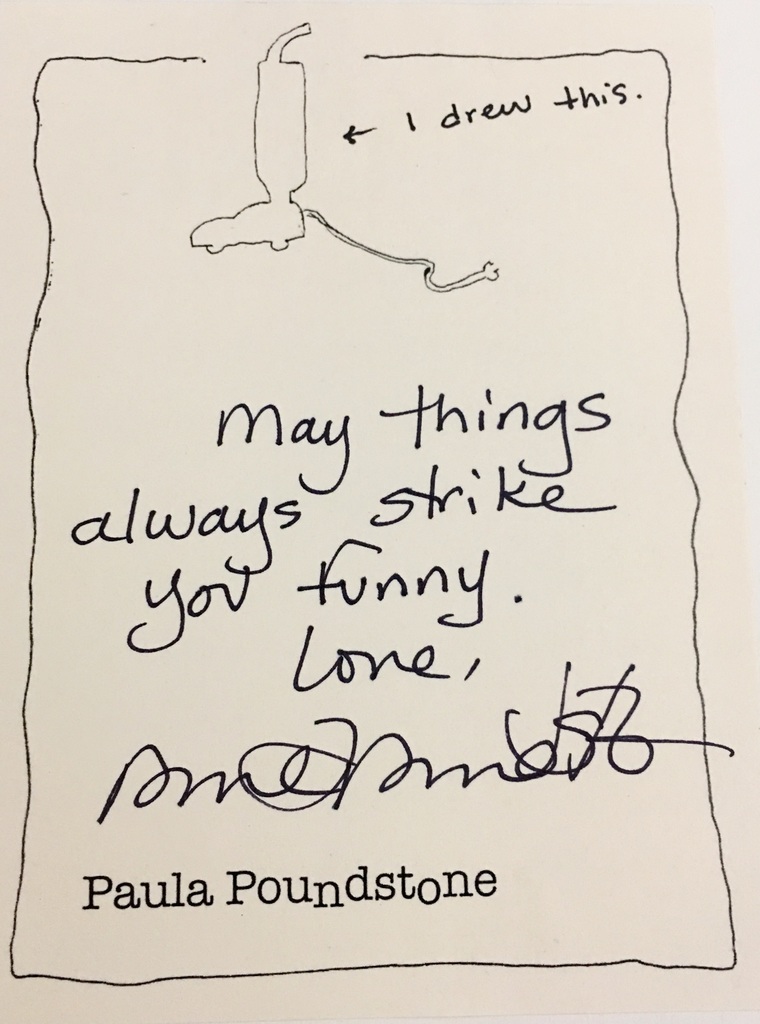 ← I drew this.
May things
always strike
you funny.
Love,
Paula Poundstone